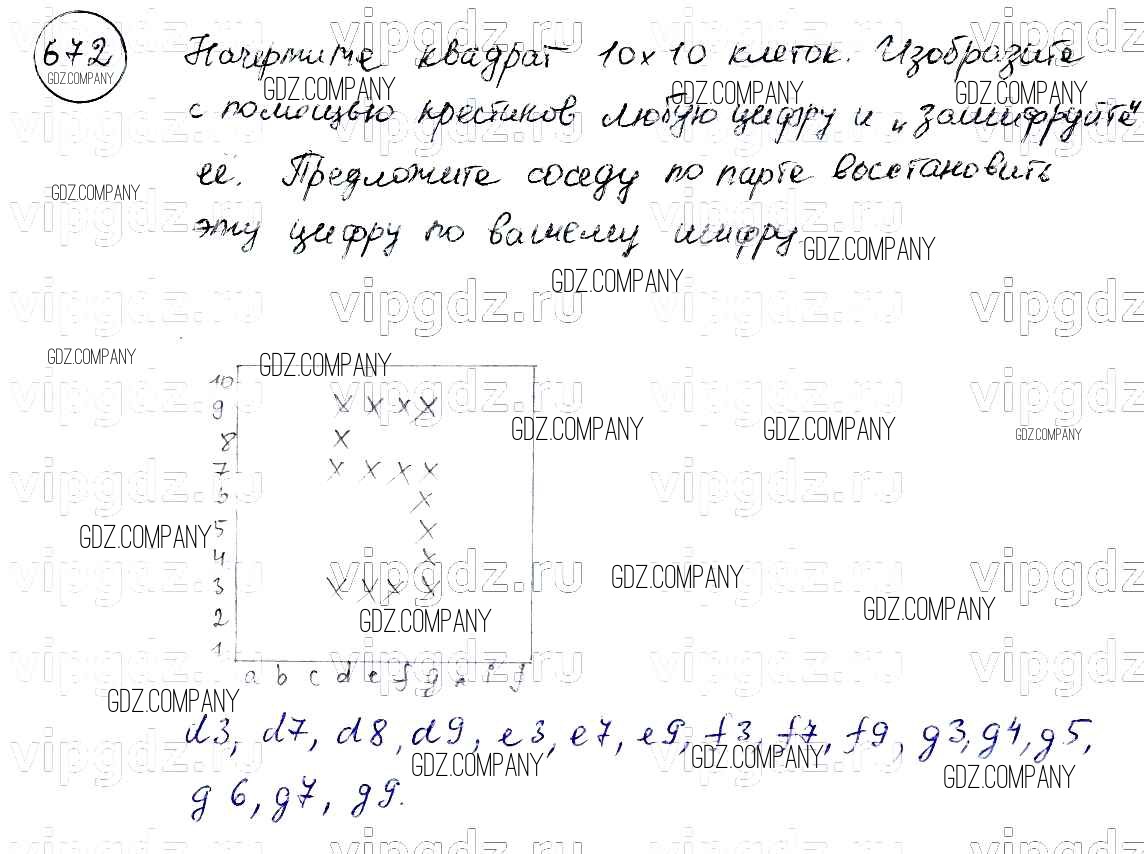 672
Начертите квадрат 10х10 клеток. Изобразите
с помощью крестиков любую цифру и „зашифруйте"
её. Предложите соседу по парте восстановить
эту цифру по вашему шифру.
10
9 х х х х
8 х
7 х х х х
6 х
5 х
4 х
3 х х х х
2
1
a b c d e f g h i j
d3, d7, d8, d9, e3, e7, e9, f3, f7, f9, g3, g4, g5,
g6, g7, g9.
GDZ.COMPANY
vipgdz.ru